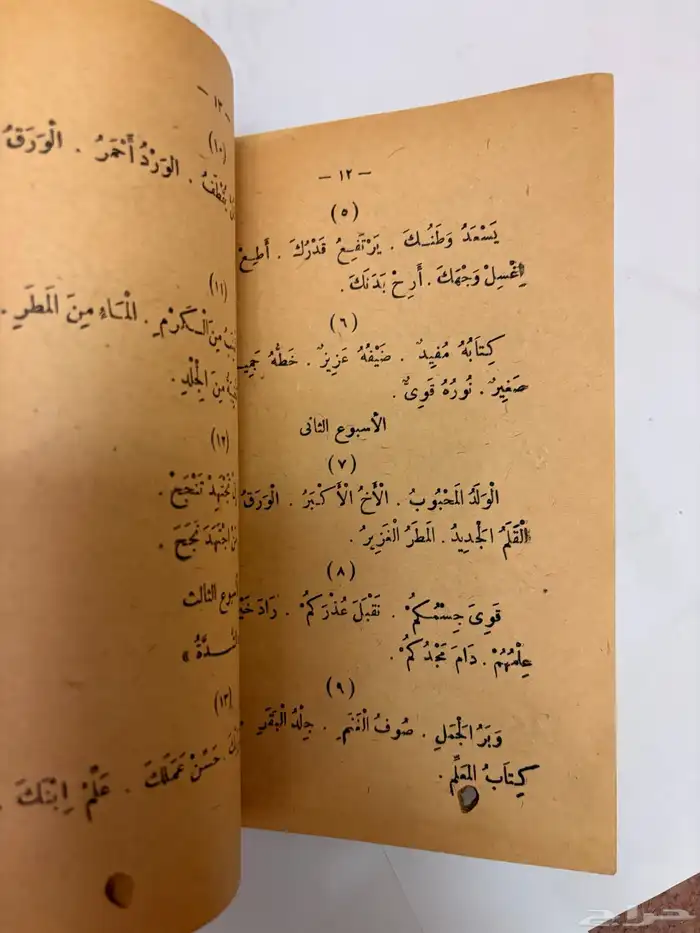 — ١٢ —
(٥)
يَسْعَدُ وَطَنُكَ . يَرْتَفِعُ قَدْرُكَ . أَطِعْ
اِغْسِلْ وَجْهَكَ . أَرِحْ بَدَنَكَ .
(٦)
كِتَابُهُ مُفِيدٌ . ضَيْفُهُ عَزِيزٌ . خَطُّهُ
صَغِيرٌ . نُورُهُ قَوِىٌّ .
الأسبوع الثانى
(٧)
الْوَلَدُ الْمَحْبُوبُ . الْأَخُ الْأَكْبَرُ . الْوَرَقُ
الْقَلَمُ الْجَدِيدُ . الْمَطَرُ الْغَزِيرُ .
(٨)
قَوِىَ جِسْمُكُمْ . نَقْبَلَ عُذْرَكُمْ . زَادَ
عِلْمُهُمْ . دَامَ مَجْدُكُمْ .
(٩)
وَبَرُ الْجَمَلِ . صُوفُ الْغَنَمِ . جِلْدُ الْبَقَرِ
كِتَابُ الْمُعَلِّمِ .
— ١٣ —
(١٠)
الْوَرْدُ أَحْمَرُ . الْوَرَقُ
يُقْطَفُ .
(١١)
مِنَ الْكَرْمِ . الْمَاءُ مِنَ الْمَطَرِ .
مِنَ الْجِلْدِ .
(١٢)
تَجْتَهِدْ تَنْجَحْ .
اجْتَهَدَ نَجَحَ .
الثالث
الشَّدَّةُ »
(١٣)
حَسِّنْ عَمَلَكَ . عَلِّمْ اِبْنَكَ .
حراج